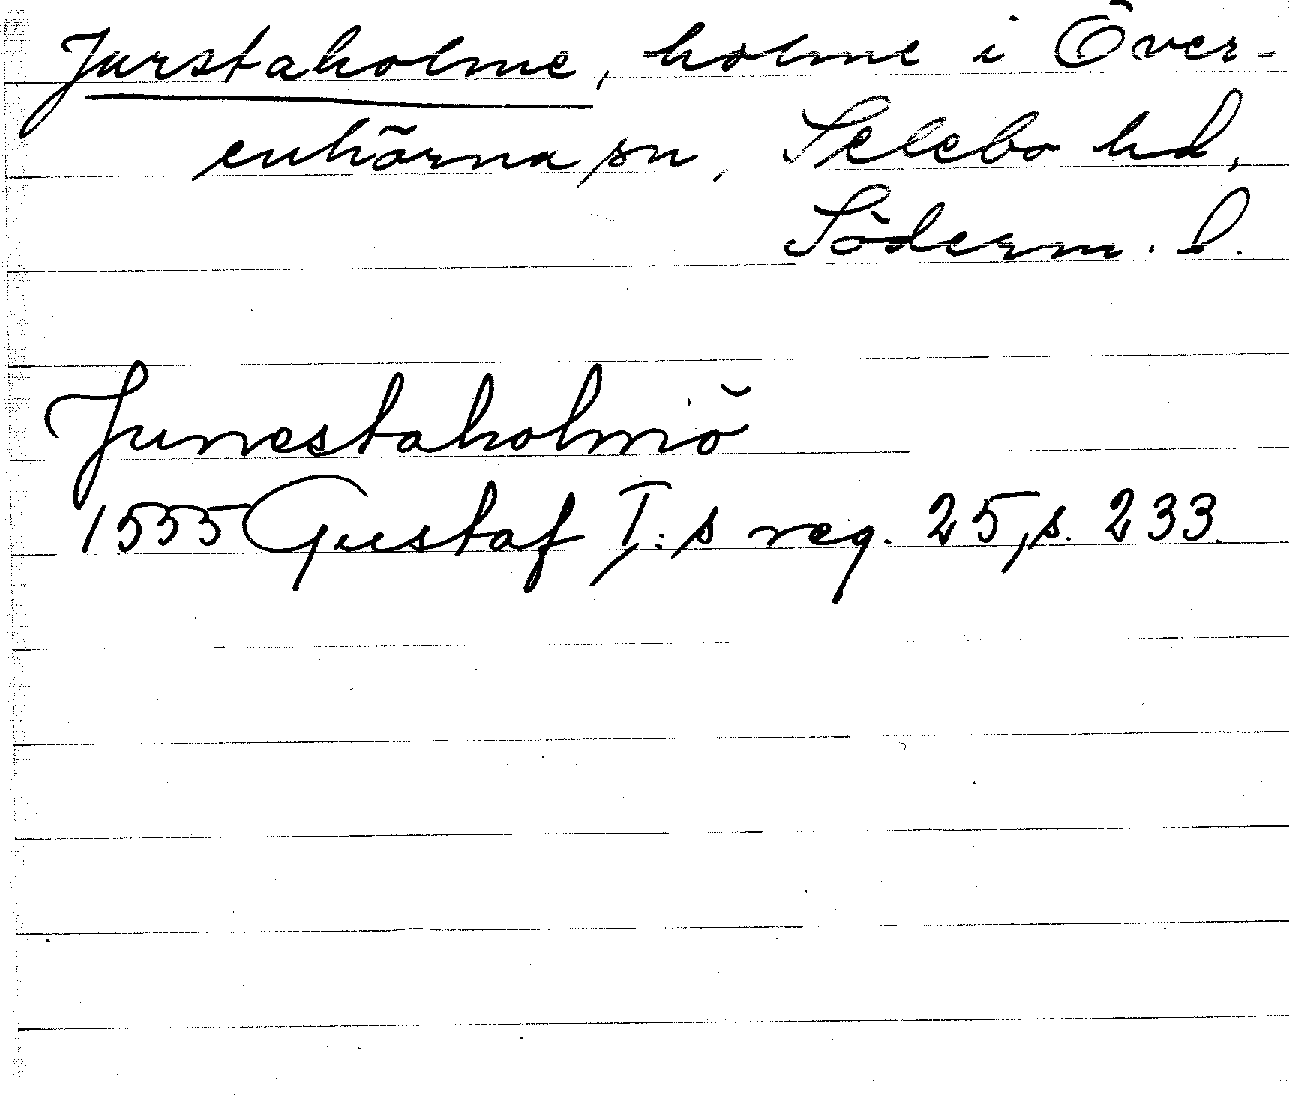 Jurstaholme, holme i Över-
enhörna sn, Selebo hd,
Söderm. l.
Junestaholmö
1555 Gustaf I:s reg. 25, s. 233.